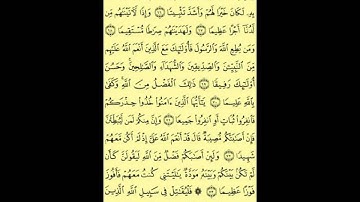 بِهِۦ لَكَانَ خَيْرًا لَّهُمْ وَأَشَدَّ تَثْبِيتًا ٦٦ وَإِذًا لَّءَاتَيْنَٰهُم مِّن
لَّدُنَّآ أَجْرًا عَظِيمًا ٦٧ وَلَهَدَيْنَٰهُمْ صِرَٰطًا مُّسْتَقِيمًا ٦٨
وَمَن يُطِعِ ٱللَّهَ وَٱلرَّسُولَ فَأُو۟لَٰٓئِكَ مَعَ ٱلَّذِينَ أَنْعَمَ ٱللَّهُ عَلَيْهِم
مِّنَ ٱلنَّبِيِّـۧنَ وَٱلصِّدِّيقِينَ وَٱلشُّهَدَآءِ وَٱلصَّٰلِحِينَ وَحَسُنَ
أُو۟لَٰٓئِكَ رَفِيقًا ٦٩ ذَٰلِكَ ٱلْفَضْلُ مِنَ ٱللَّهِ وَكَفَىٰ
بِٱللَّهِ عَلِيمًا ٧٠ يَٰٓأَيُّهَا ٱلَّذِينَ ءَامَنُوا۟ خُذُوا۟ حِذْرَكُمْ
فَٱنفِرُوا۟ ثُبَاتٍ أَوِ ٱنفِرُوا۟ جَمِيعًا ٧١ وَإِنَّ مِنكُمْ لَمَن لَّيُبَطِّئَنَّ
فَإِنْ أَصَٰبَتْكُم مُّصِيبَةٌ قَالَ قَدْ أَنْعَمَ ٱللَّهُ عَلَىَّ إِذْ لَمْ أَكُن مَّعَهُمْ
شَهِيدًا ٧٢ وَلَئِنْ أَصَٰبَكُمْ فَضْلٌ مِّنَ ٱللَّهِ لَيَقُولَنَّ كَأَن
لَّمْ تَكُنۢ بَيْنَكُمْ وَبَيْنَهُۥ مَوَدَّةٌ يَٰلَيْتَنِى كُنتُ مَعَهُمْ فَأَفُوزَ
فَوْزًا عَظِيمًا ٧٣ ۞ فَلْيُقَٰتِلْ فِى سَبِيلِ ٱللَّهِ ٱلَّذِينَ